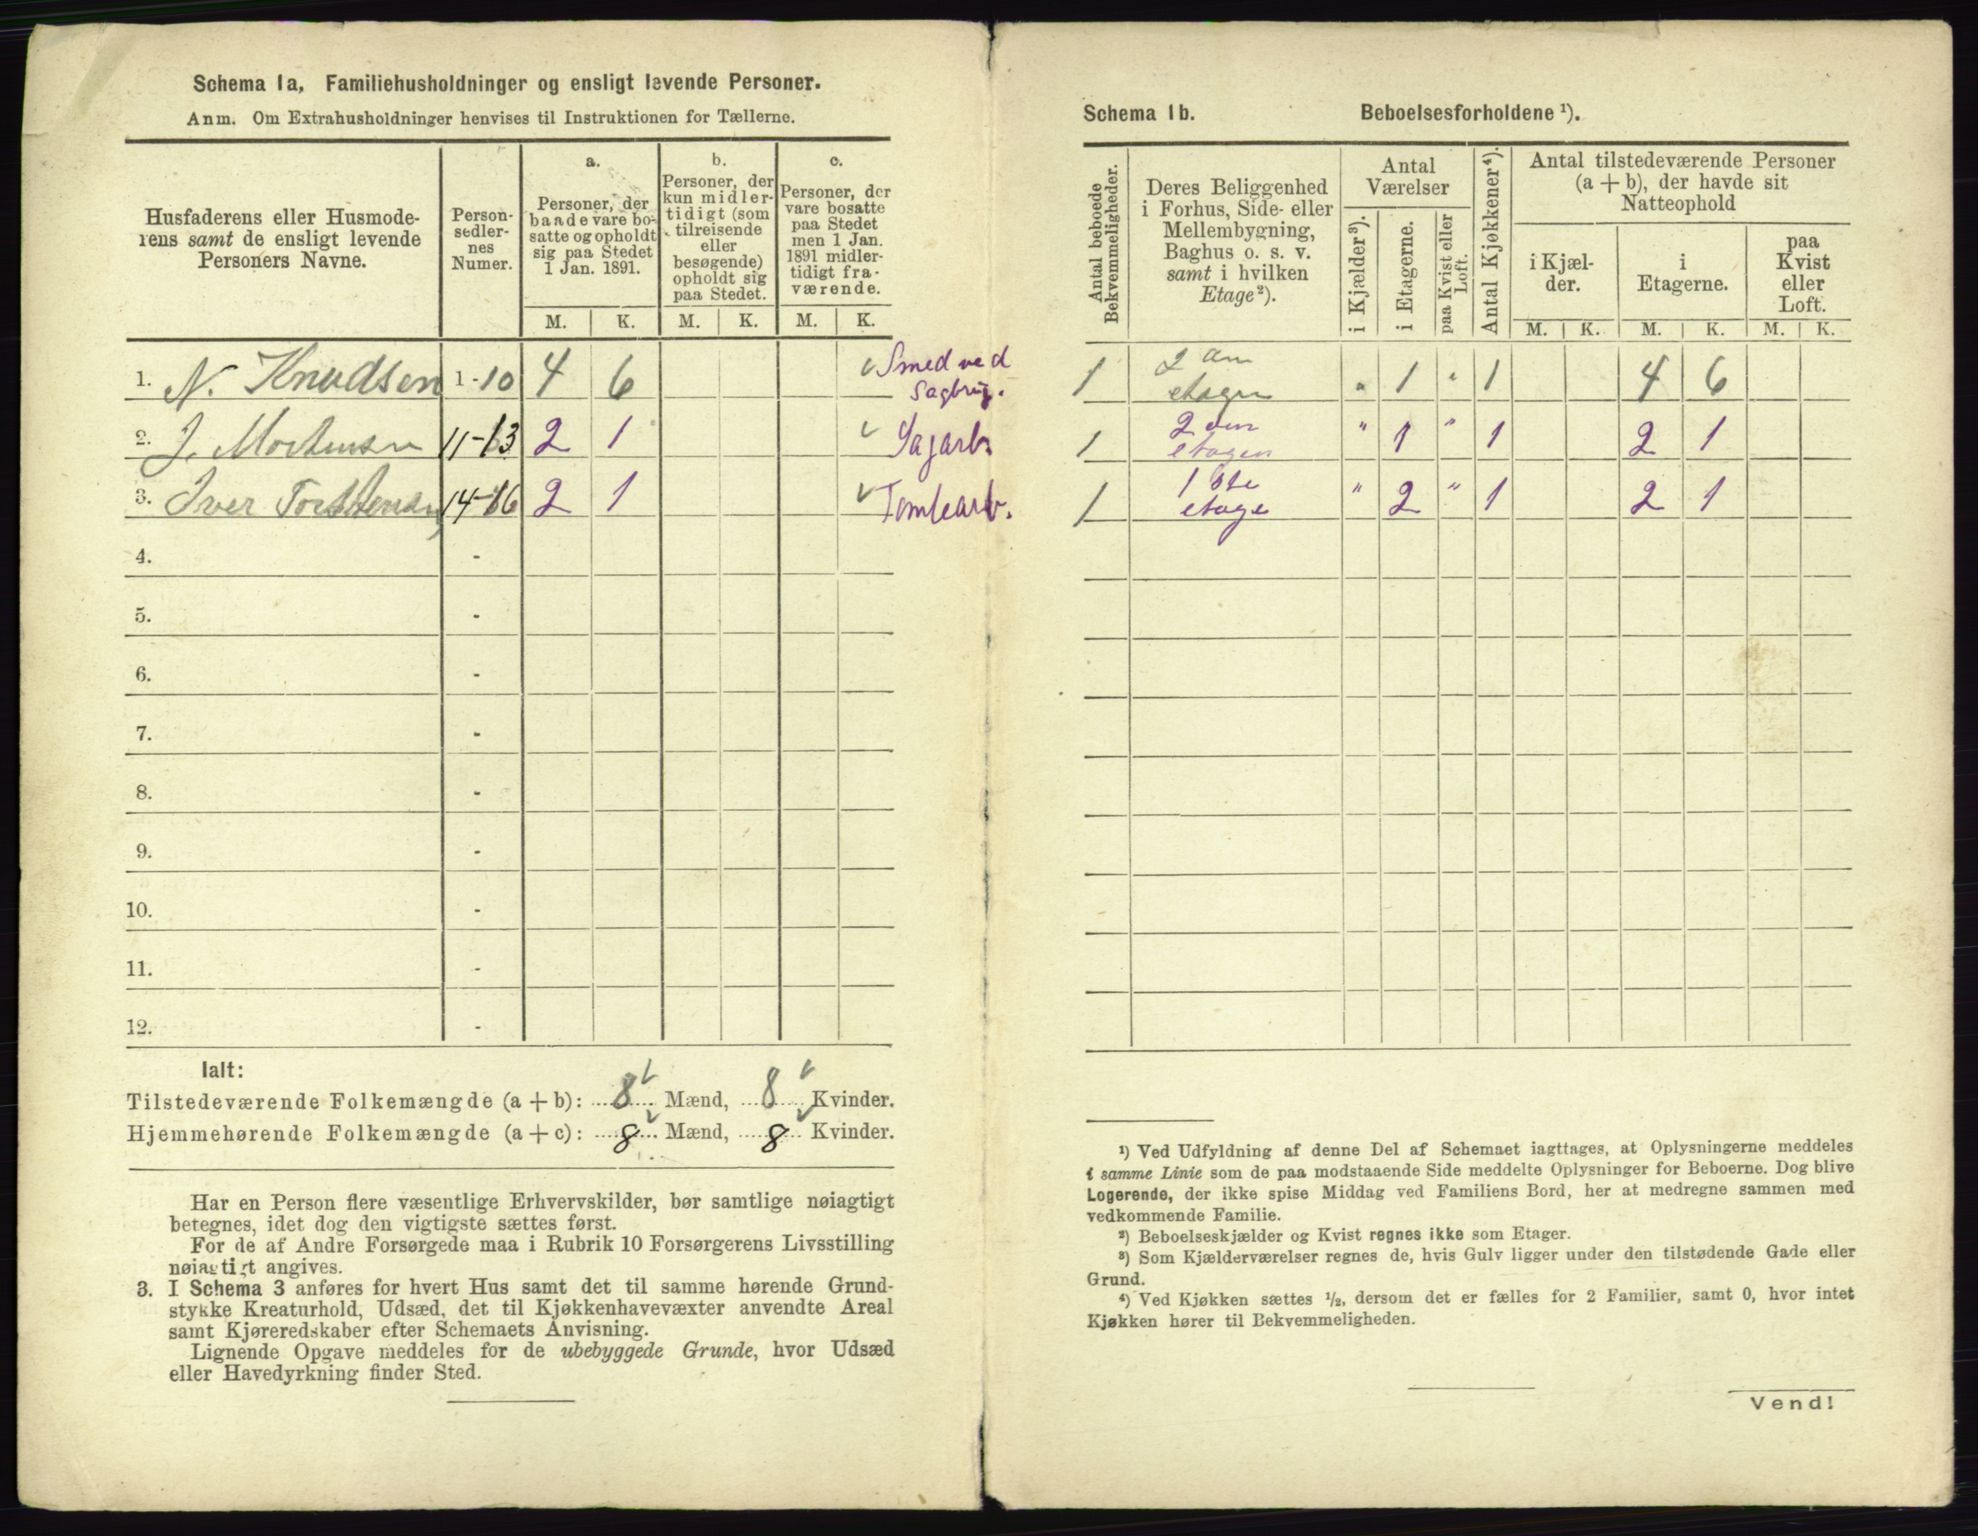 Schema 1a, Familiehusholdninger og ensligt levende Personer.
Anm. Om Extrahusholdninger henvises til Instruktionen for Tællerne.
Husfaderens eller Husmoderens samt de ensligt levende Personers Navne.
Person-sedlernes Numer.
a. Personer, der baade vare bosatte og opholdt sig paa Stedet 1 Jan. 1891.
b. Personer, der kun midlertidigt (som tilreisende eller besøgende) opholdt sig paa Stedet.
c. Personer, der vare bosatte paa Stedet men 1 Jan. 1891 midlertidigt fraværende.
M. K. M. K. M. K.
1. N. Knudsen 1-10 4 6 Smed ved Sagbrug.
2. J. Mortensen 11-13 2 1 Sagarb.
3. Iver Torstensen 14-16 2 1 Tomtearb.
4. -
5. -
6. -
7. -
8. -
9. -
10. -
11. -
12. -
Ialt:
Tilstedeværende Folkemængde (a + b): 8 Mænd, 8 Kvinder.
Hjemmehørende Folkemængde (a + c): 8 Mænd, 8 Kvinder.
Har en Person flere væsentlige Erhvervskilder, bør samtlige nøiagtigt
betegnes, idet dog den vigtigste sættes først.
For de af Andre Forsørgede maa i Rubrik 10 Forsørgerens Livsstilling
nøiagtigt angives.
3. I Schema 3 anføres for hvert Hus samt det til samme hørende Grund-
stykke Kreaturhold, Udsæd, det til Kjøkkenhavevæxter anvendte Areal
samt Kjøreredskaber efter Schemaets Anvisning.
Lignende Opgave meddeles for de ubebyggede Grunde, hvor Udsæd
eller Havedyrkning finder Sted.
Schema 1b. Beboelsesforholdene ¹).
Antal beboede Bekvemmeligheder.
Deres Beliggenhed i Forhus, Side- eller Mellembygning, Baghus o. s. v. samt i hvilken Etage²).
Antal Værelser
i Kjælder³).
i Etagerne.
paa Kvist eller Loft.
Antal Kjøkkener⁴).
Antal tilstedeværende Personer (a + b), der havde sit Natteophold
i Kjælder.
i Etagerne.
paa Kvist eller Loft.
M. K. M. K. M. K.
1 2 den etagen " 1 " 1 4 6
1 2 den etagen " 1 " 1 2 1
1 1 ste etage " 2 " 1 2 1
¹) Ved Udfyldning af denne Del af Schemaet iagttages, at Oplysningerne meddeles
i samme Linie som de paa modstaaende Side meddelte Oplysninger for Beboerne. Dog blive
Logerende, der ikke spise Middag ved Familiens Bord, her at medregne sammen med
vedkommende Familie.
²) Beboelseskjælder og Kvist regnes ikke som Etager.
³) Som Kjælderværelser regnes de, hvis Gulv ligger under den tilstødende Gade eller
Grund.
⁴) Ved Kjøkken sættes ½, dersom det er fælles for 2 Familier, samt 0, hvor intet
Kjøkken hører til Bekvemmeligheden.
Vend!